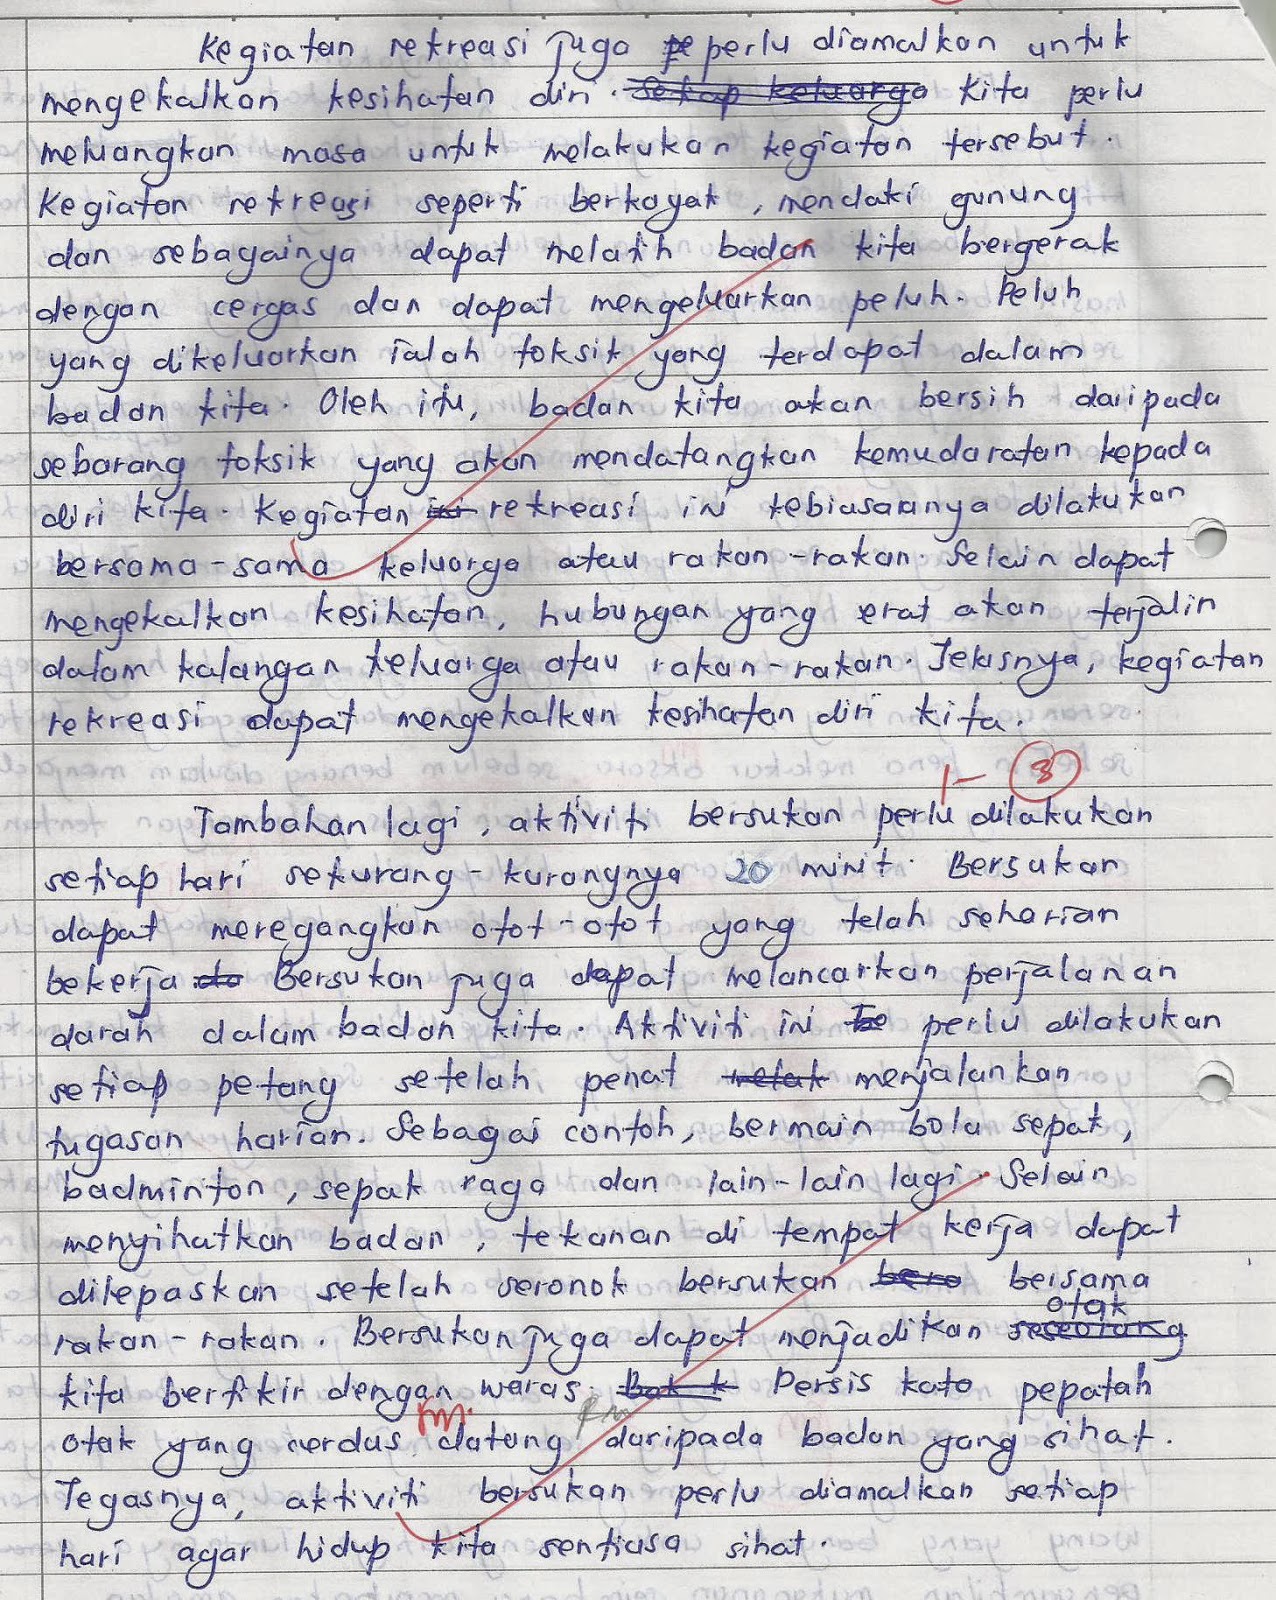 Kegiatan rekreasi juga pe perlu diamalkan untuk
mengekalkan kesihatan diri. Setiap keluarga Kita perlu
meluangkan masa untuk melakukan kegiatan tersebut.
Kegiatan rekreasi seperti berkayak, mendaki gunung
dan sebagainya dapat melatih badan kita bergerak
dengan cergas dan dapat mengeluarkan peluh. Peluh
yang dikeluarkan ialah toksik yang terdapat dalam
badan kita. Oleh itu, badan kita akan bersih daripada
sebarang toksik yang akan mendatangkan kemudaratan kepada
diri kita. Kegiatan ini rekreasi ini kebiasaanya dilakukan
bersama-sama keluarga atau rakan-rakan. Selain dapat
mengekalkan kesihatan, hubungan yang erat akan terjalin
dalam kalangan keluarga atau rakan-rakan. Jelasnya, kegiatan
rekreasi dapat mengekalkan kesihatan diri kita.
1- 3
Tambahan lagi, aktiviti bersukan perlu dilakukan
setiap hari sekurang-kurangnya 20 minit. Bersukan
dapat meregangkan otot-otot yang telah seharian
bekerja da Bersukan juga dapat melancarkan perjalanan
darah dalam badan kita. Aktiviti ini be perlu dilakukan
setiap petang setelah penat melak menjalankan
tugasan harian. Sebagai contoh, bermain bola sepat,
badminton, sepak raga dan lain-lain lagi. Selain
menyihatkan badan, tekanan di tempat kerja dapat
dilepaskan setelah seronok bersukan bera bersama
otak
rakan-rakan. Bersukan juga dapat menjadikan seseorang
kita berfikir dengan waras. Bak k Persis kata pepatah
otak yang cerdas datang daripada badan yang sihat.
Tegasnya, aktiviti bersukan perlu diamalkan setiap
hari agar hidup kita sentiasa sihat.